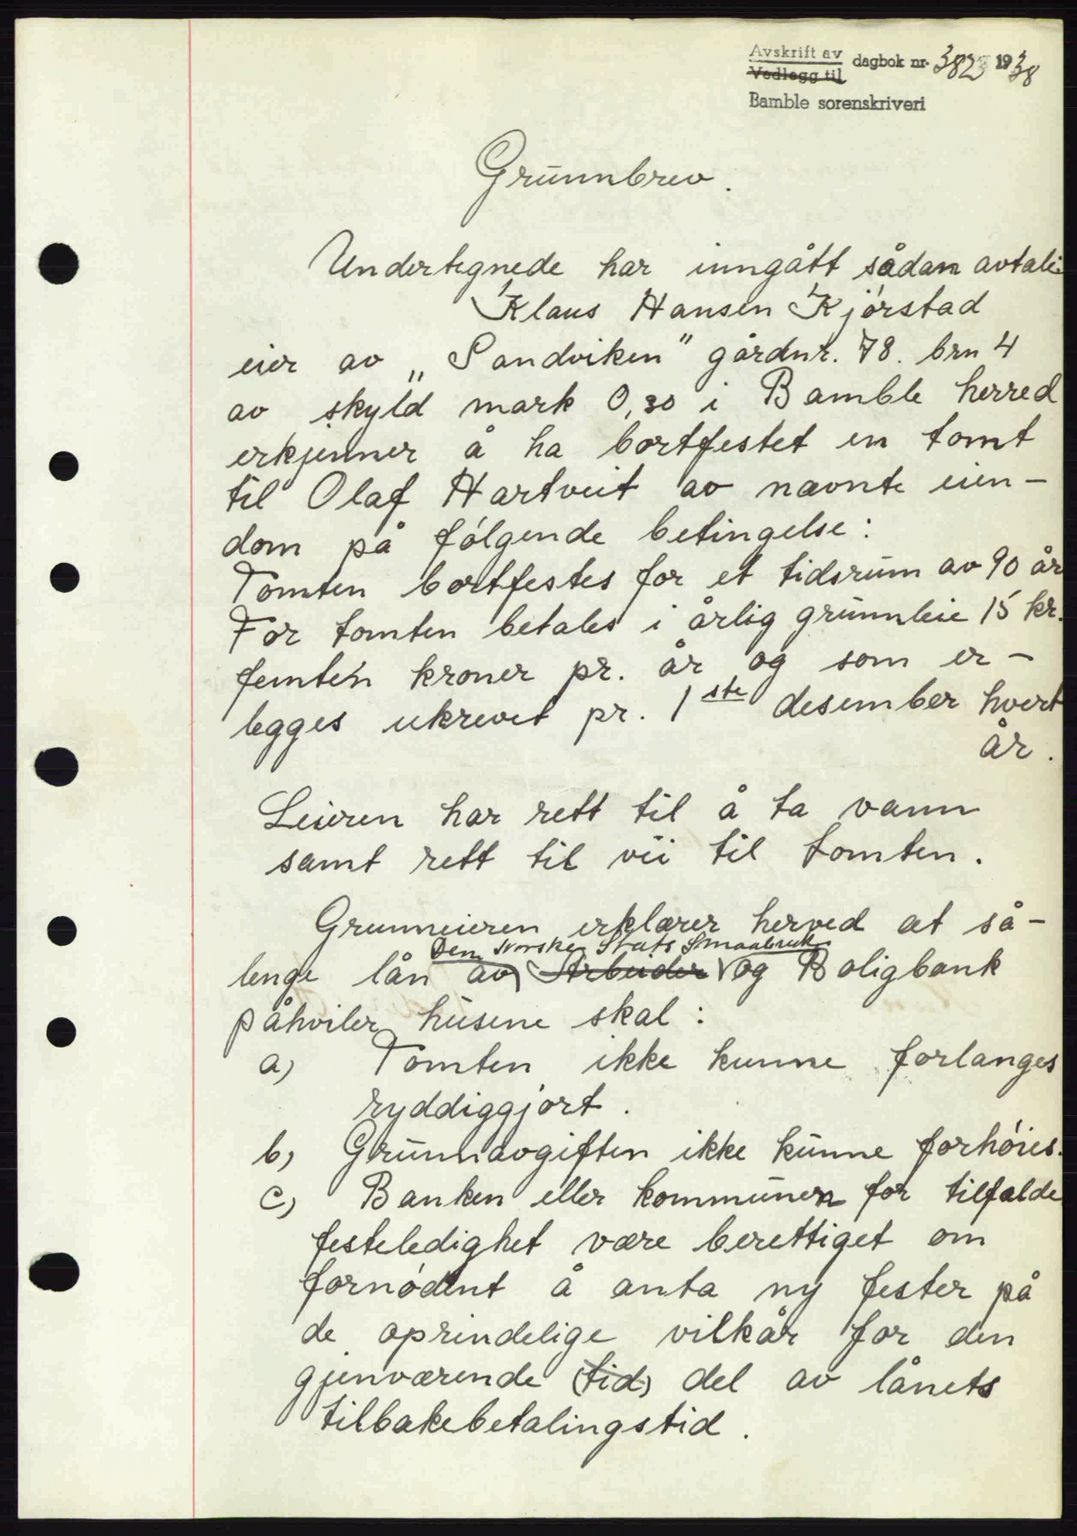 Avskrift av
Vedlegg til dagbok nr. 3823 1938
Bamble sorenskriveri
Grunnbrev.
Undertegnede har inngått sådan avtale
Klaus Hansen Kjørstad
eier av „Sandviken" gårdnr. 78. brn 4
av skyld mark 0,30 i Bamble herred
erkjenner å ha bortfestet en tomt
til Olaf Hartveit av nævnte eien-
dom på følgende betingelse:
Tomten bortfestes for et tidsrum av 90 år
For tomten betales i årlig grunnleie 15 kr.
femten kroner pr. år og som er-
legges ukrevet pr. 1ste desember hvert
år.
Leieren har rett til å ta vann
samt rett til vei til tomten.
Grunneieren erklærer herved at så-
Den Norske Stats Smaabruk
lenge lån av Arbeider og Boligbank
påhviler husene skal:
a) Tomten ikke kunne forlanges
ryddiggjort.
b) Grunnavgiften ikke kunne forhøies.
c) Banken eller kommunen for tilfælde
festeledighet være berettiget om
fornødent å anta ny fester på
de oprindelige vilkår for den
gjenværende (tid) del av lånets
tilbakebetalingstid.